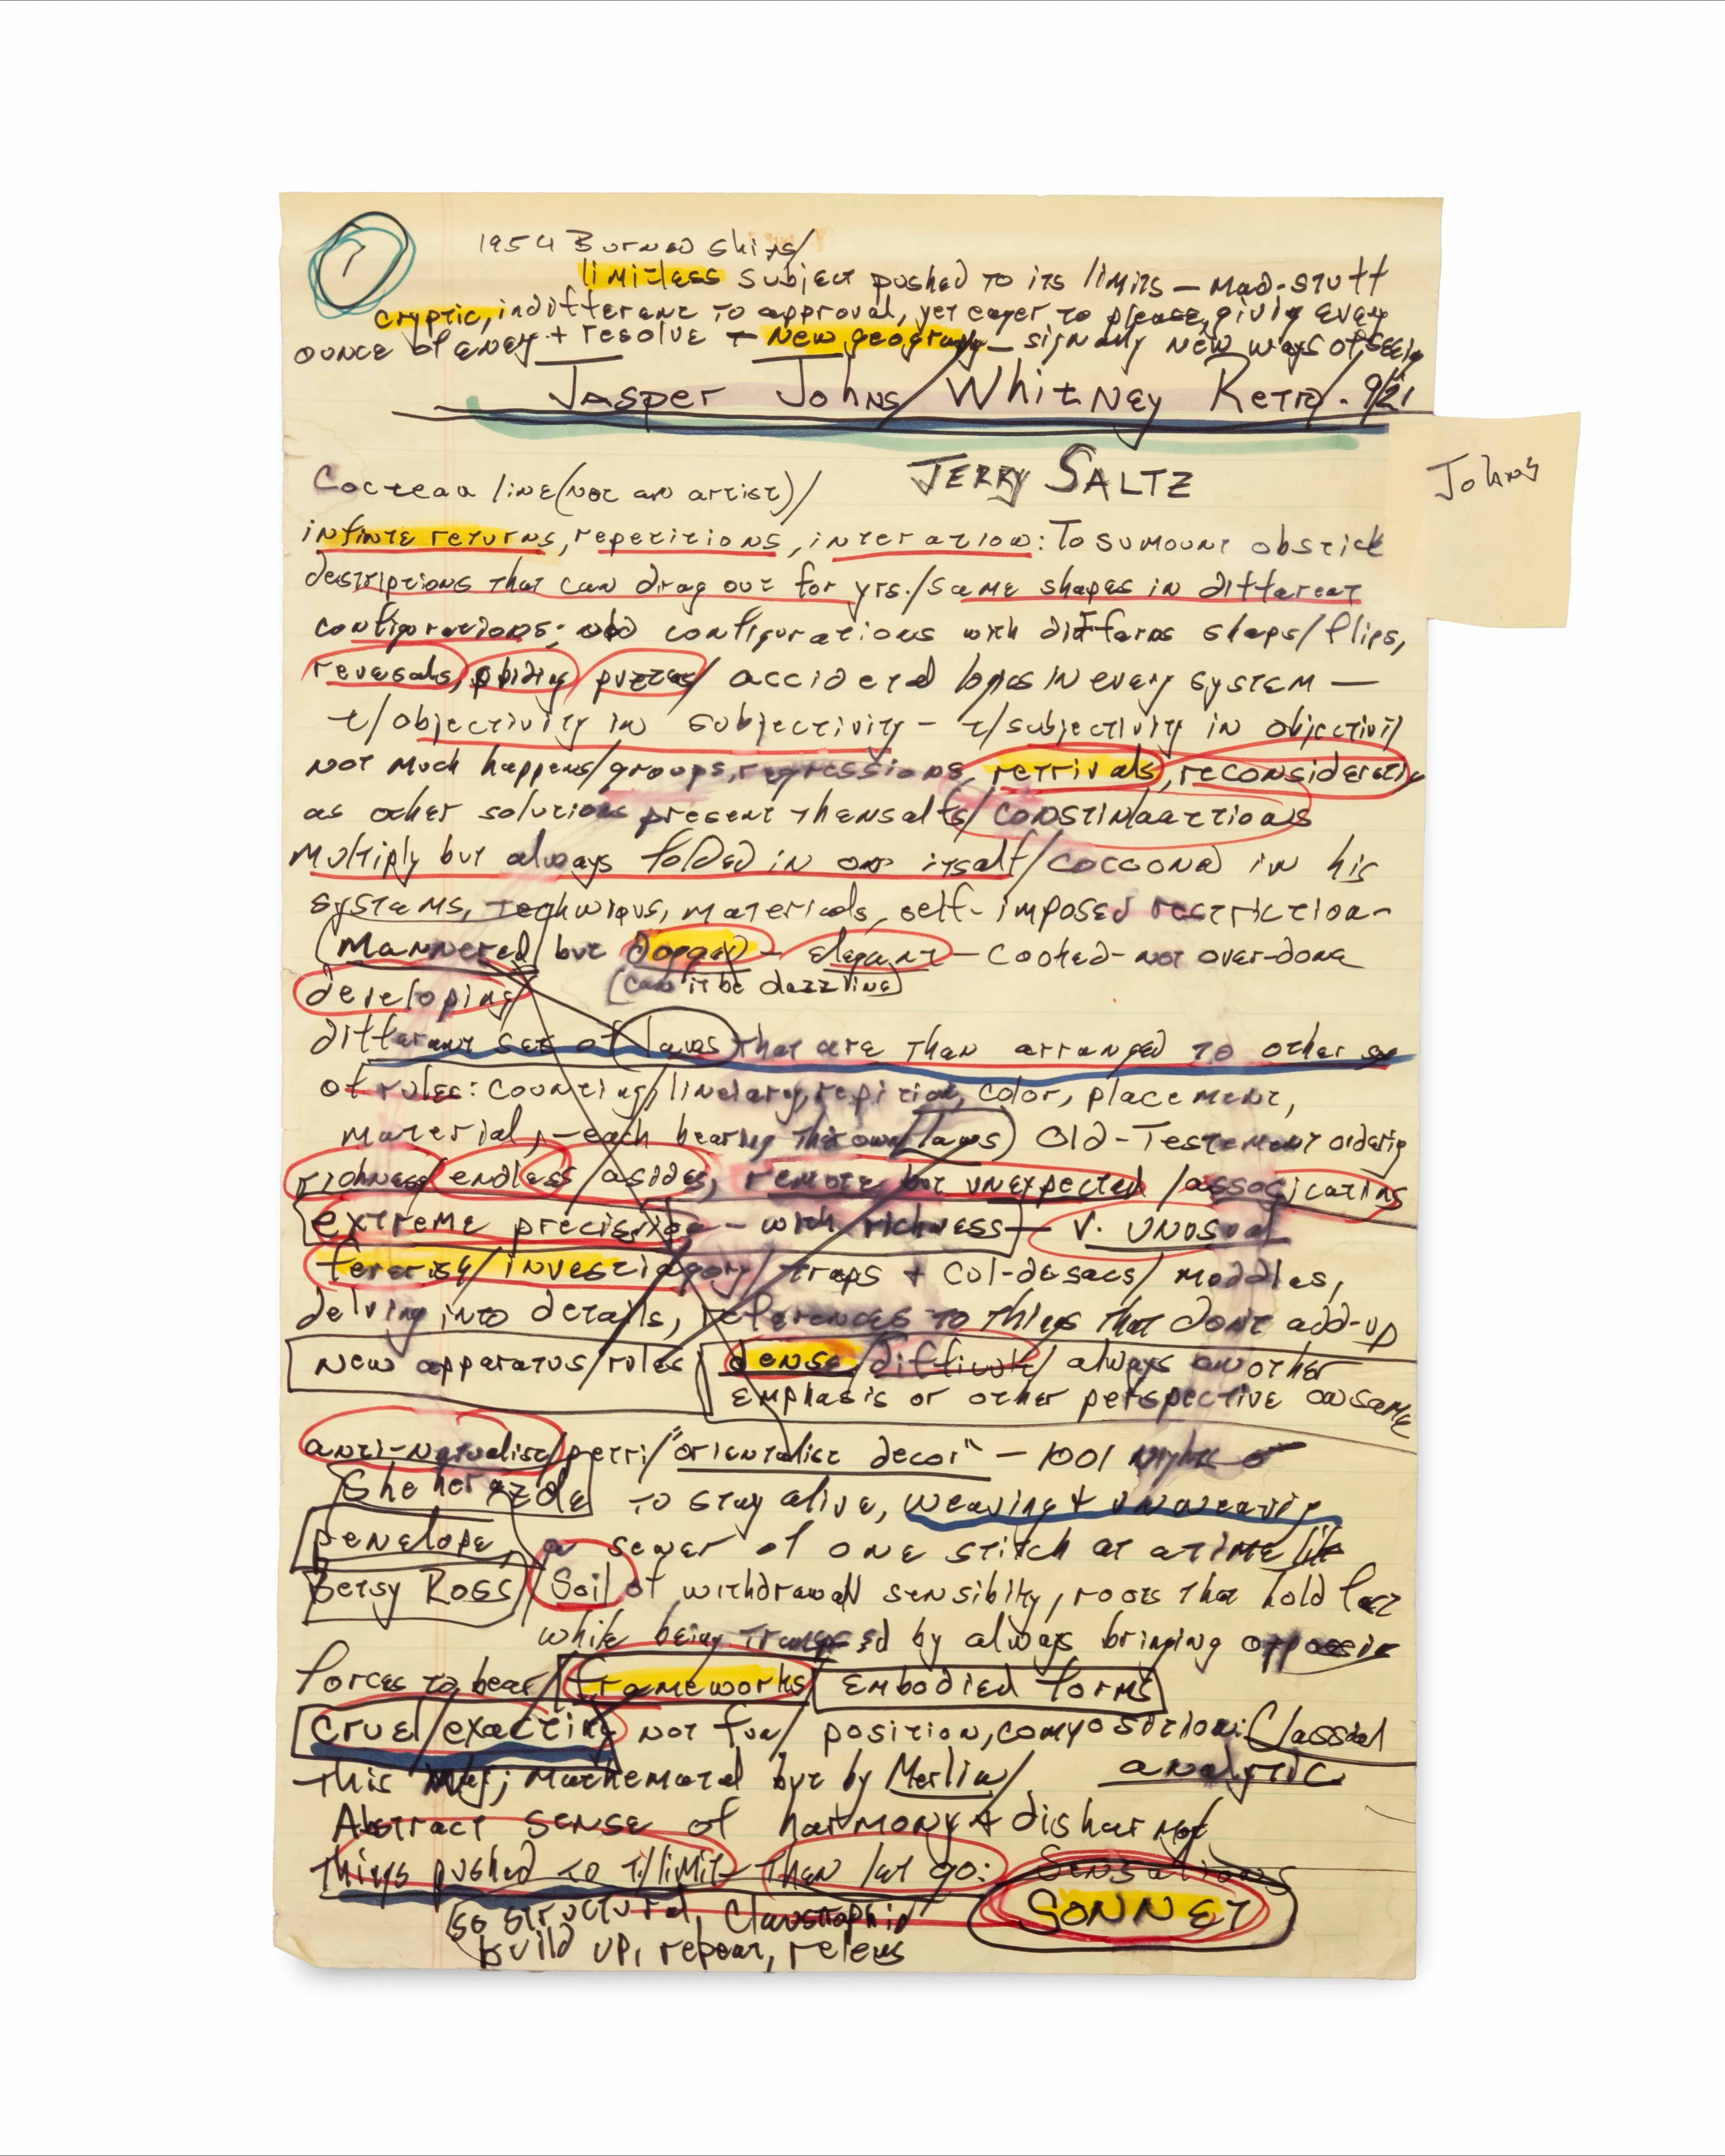 1
1954 Burned Ships/
limitless subject pushed to its limits — mad-stuff
cryptic, indifferent to approval, yet eager to please, giving every
ounce of enegy + resolve — New geography — signaly new ways of seeig
Jasper Johns/Whitney Retro. 9/21
Johns
JERRY SALTZ
Cocteau line (not an artist)/
infinte returns, repetitions, interation: To sumount obstick
descriptions that can drag out for yrs./same shapes in different
configurations; odd configurations with differns shaps/flips,
reversals, abiding puzzes/ accidered logics in every system —
t/objectivity in subjectivity — t/subjectivity in objectivity
not much happens/groups, regressions, retrivals, reconsideratin
as other solutions present themsalfs/
multiply but always folded in on itsalf/cocooned in his
systems, techniqus, materials, self-imposed restriction-
(Mannered/ but — elegant — cooked-not over-done
developing (can it be dazzling)
different set of laws that are than arranged to other
of rules: counting/linelary, repition, color, placement,
material, — each bearing their own (laws) Old-Testement orderig
richness/endless/asides, remote but unexpected/associcatins
extreme precision — with richness — V. unosual
/investiagory/traps + cul-desacs/ moddles,
delving into details, references to things that don't add-up
New apparatus/rules
dense/difficult/ always another
emphasis or other perspective on same
anti-natualist/petri/"orientalist decor" — 1001 Nights
Sheherazde to stay alive, weaving + unweavig
Penelope, a sewer of one stitch at a time like
Betsy Ross/ Soil of withdrawall sensibilty, roots that hold fast
while being by always bringing opposin
forces to bear/frameworks/Embodied forms
cruel/exacting not fun/ position, composition: Classical
this ; mathematal but by Merlin/ analytic
Abstract sense of harmony + disharmony
things pushed to t/limit — then let go: Sensations
SONNET
so structured, Claustraphic
build up, repeat, releus